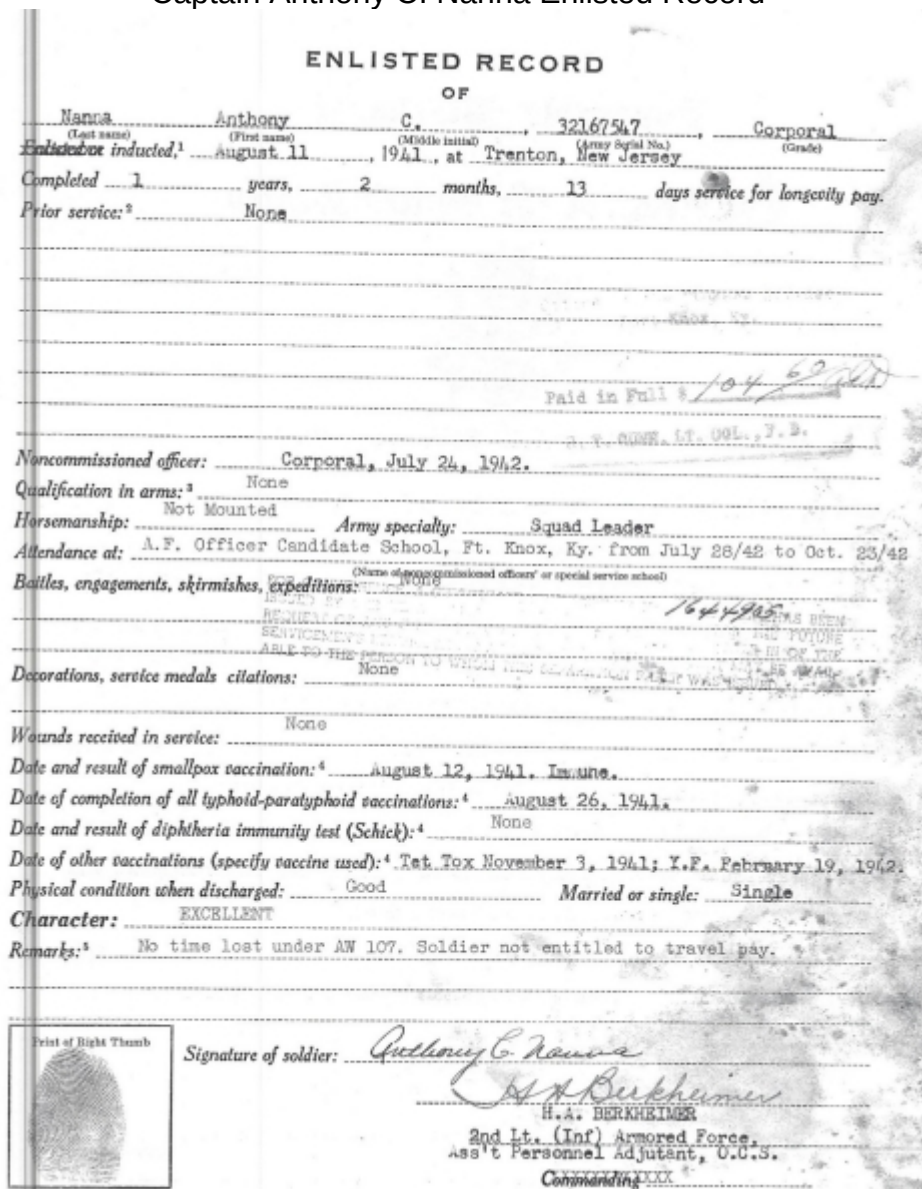 Captain Anthony C. Nanna Enlisted Record
ENLISTED RECORD
OF
Nanna Anthony C. , 32167547 , Corporal
(Last name) (First name) (Middle initial) (Army Serial No.) (Grade)
Enlisted or inducted,¹ August 11 , 1941 , at Trenton, New Jersey
Completed 1 years, 2 months, 13 days service for longevity pay.
Prior service:² None
Knox, Ky.
Paid in Full $ 104 60
LT. COL., F.D.
Noncommissioned officer: Corporal, July 24, 1942.
Qualification in arms:³ None
Horsemanship: Not Mounted Army specialty: Squad Leader
Attendance at: A.F. Officer Candidate School, Ft. Knox, Ky. from July 28/42 to Oct. 23/42
(Name of noncommissioned officers' or special service school)
Battles, engagements, skirmishes, expeditions: None
1644905
HAS BEEN
ISSUED BY
FUTURE
REQUEST
IN OF THE
SERVICEMEN'S
ABLE TO THE PERSON TO WHOM THIS SEPARATION PAPER WAS
Decorations, service medals citations: None
Wounds received in service: None
Date and result of smallpox vaccination:⁴ August 12, 1941. Immune.
Date of completion of all typhoid-paratyphoid vaccinations:⁴ August 26, 1941.
Date and result of diphtheria immunity test (Schick):⁴ None
Date of other vaccinations (specify vaccine used):⁴ Tet Tox November 3, 1941; Y.F. February 19, 1942.
Physical condition when discharged: Good Married or single: Single
Character: EXCELLENT
Remarks:⁵ No time lost under AW 107. Soldier not entitled to travel pay.
Print of Right Thumb
Signature of soldier: Anthony C. Nanna
H A Berkheimer
H.A. BERKHEIMER
2nd Lt. (Inf) Armored Force,
Ass't Personnel Adjutant, O.C.S.
Commanding